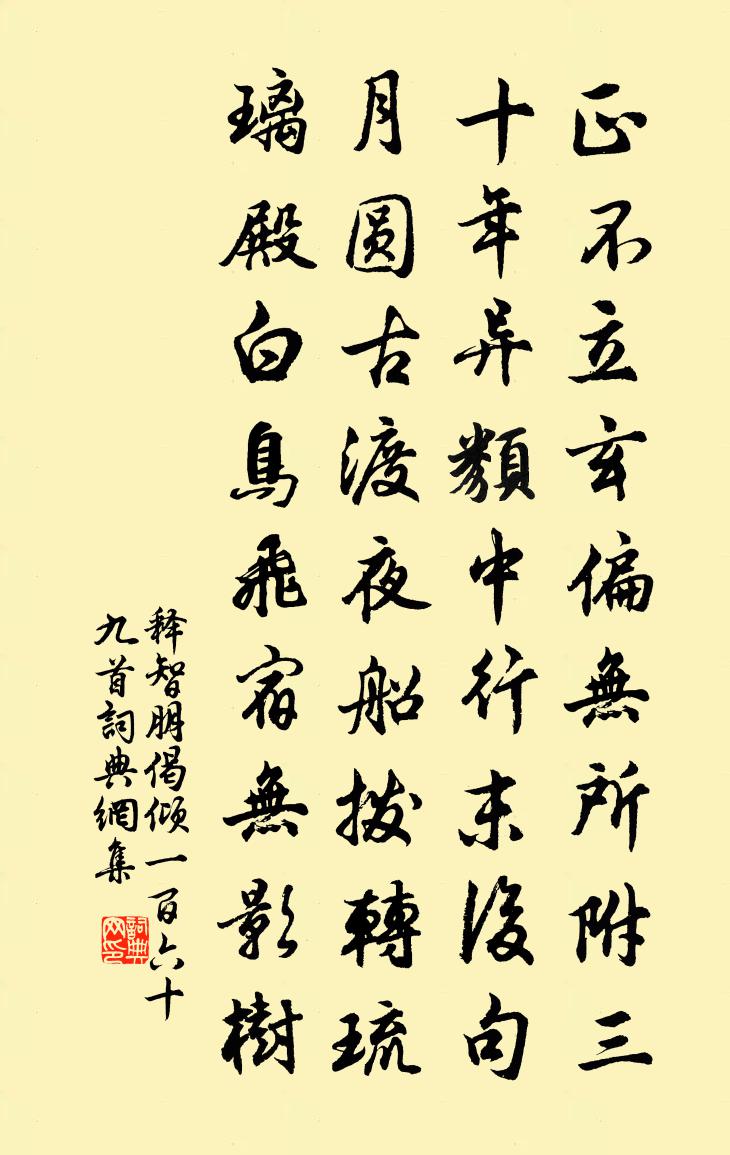 正不立玄偏無所附三
十年异類中行末後句
月圆古渡夜船拨轉琉
璃殿白鳥飛宿無影樹
释智朋偈倾一百六十
九首詞典網集
詞典網印